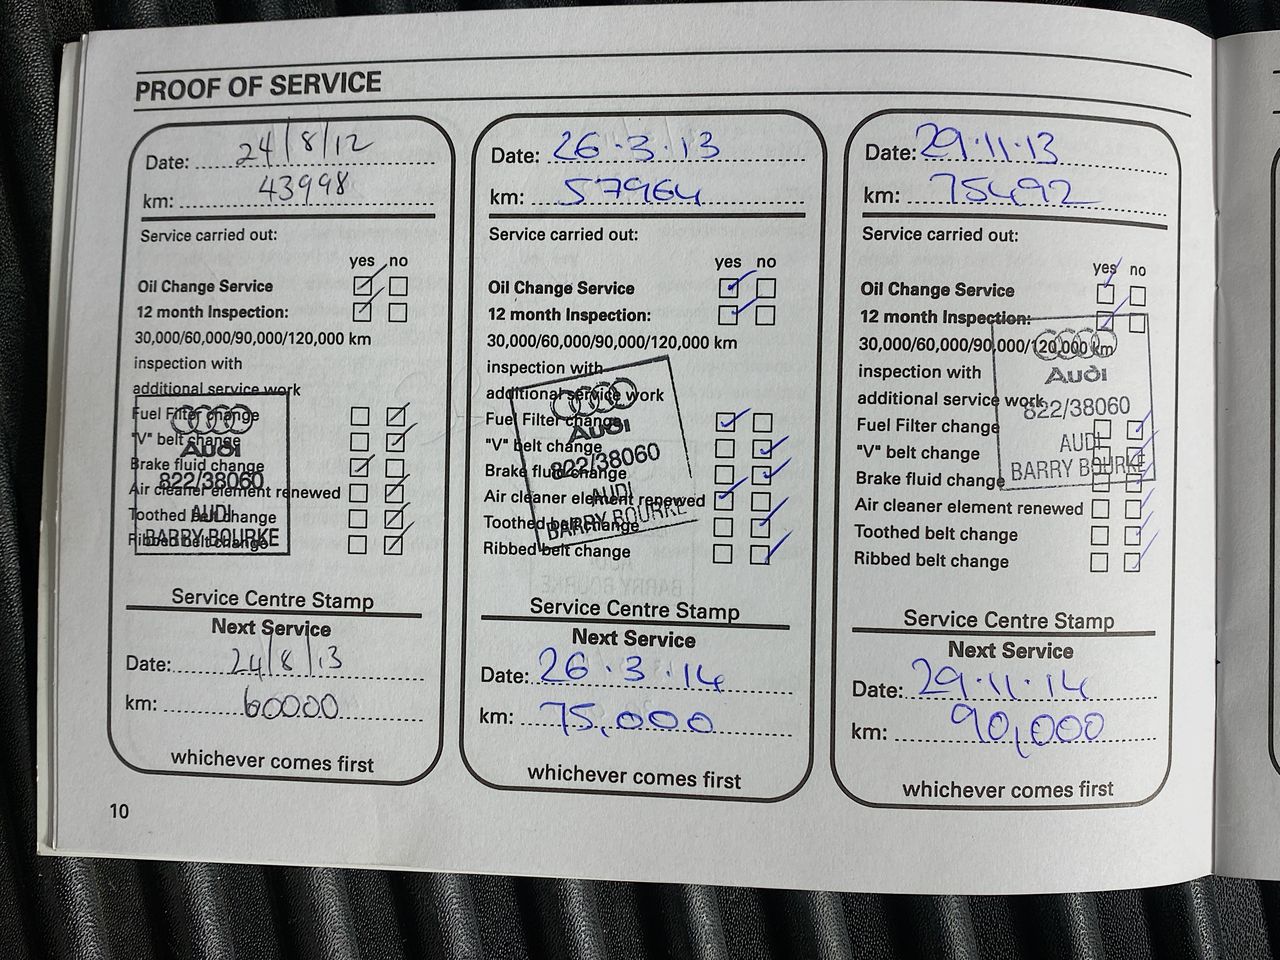 PROOF OF SERVICE
Date: 24/8/12
km: 43998
Service carried out:
yes no
Oil Change Service
12 month Inspection:
30,000/60,000/90,000/120,000 km
inspection with
additional service work
Fuel Filter change
"V" belt change
Brake fluid change
Air cleaner element renewed
Toothed belt change
Ribbed belt change
Audi
822/38060
AUDI
BARRY BOURKE
Service Centre Stamp
Next Service
Date: 24/8/13
km: 60000
whichever comes first
Date: 26.3.13
km: 57964
Service carried out:
yes no
Oil Change Service
12 month Inspection:
30,000/60,000/90,000/120,000 km
inspection with
additional service work
Fuel Filter change
"V" belt change
Brake fluid change
Air cleaner element renewed
Toothed belt change
Ribbed belt change
Audi
822/38060
AUDI
BARRY BOURKE
Service Centre Stamp
Next Service
Date: 26.3.14
km: 75,000
whichever comes first
Date: 29.11.13
km: 75492
Service carried out:
yes no
Oil Change Service
12 month Inspection:
30,000/60,000/90,000/120,000 km
inspection with
additional service work
Fuel Filter change
"V" belt change
Brake fluid change
Air cleaner element renewed
Toothed belt change
Ribbed belt change
Audi
822/38060
AUDI
BARRY BOURKE
Service Centre Stamp
Next Service
Date: 29.11.14
km: 90,000
whichever comes first
10